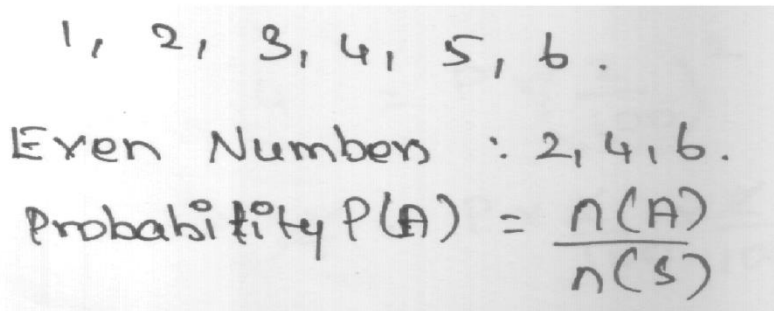 1, 2, 3, 4, 5, 6.
Even Numbers : 2, 4, 6.
Probability P(A) = n(A)/n(S)